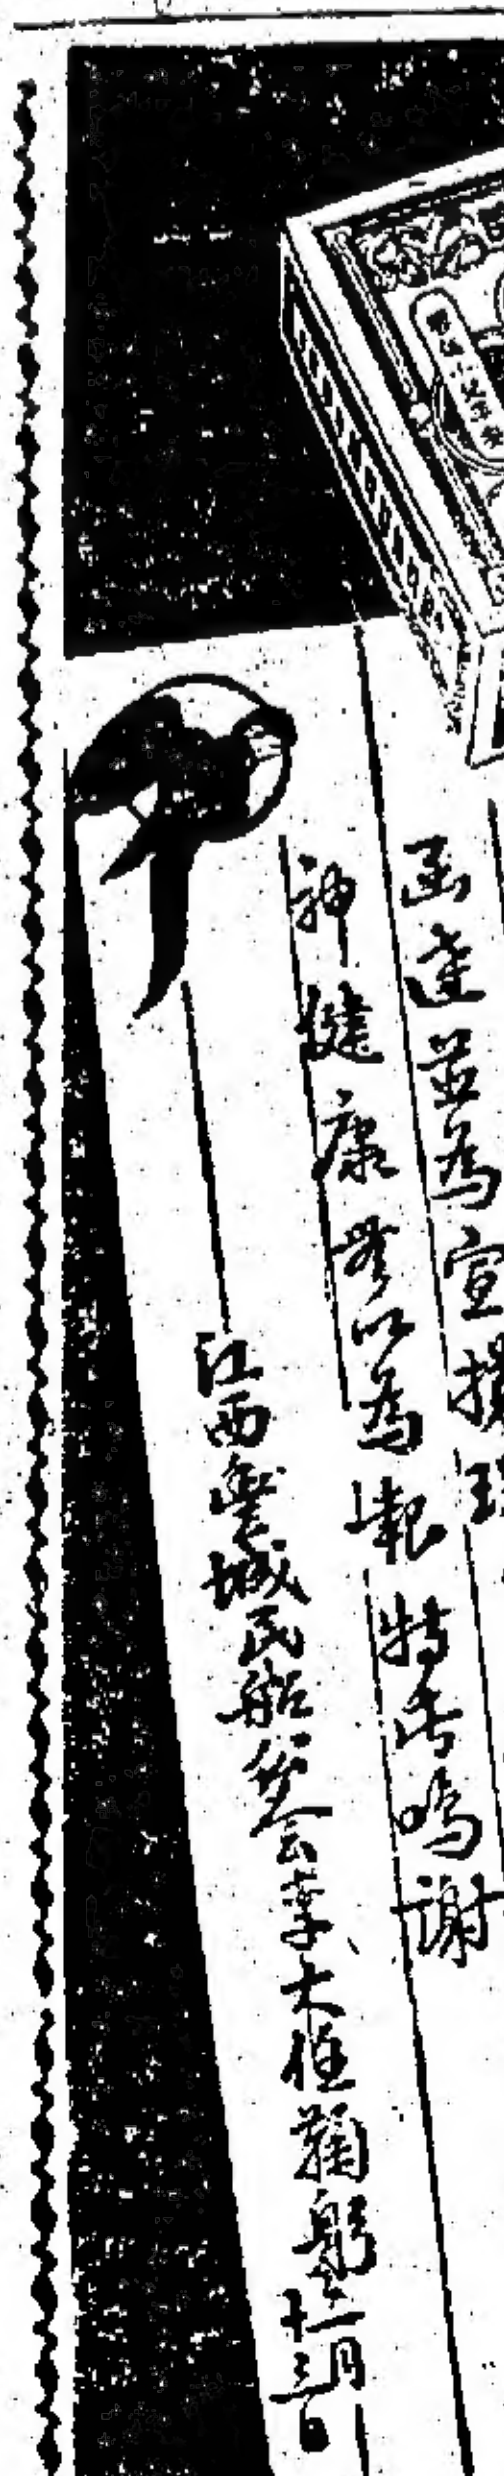 函達並為宣揚
神健康無以為報特此鳴謝
江西豐城民船公會李大維鞠躬十二月三日